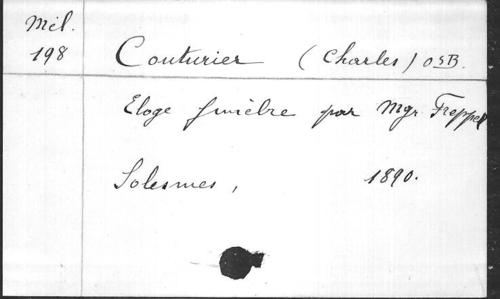 Mél.
198
Couturier (Charles) OSB.
Eloge funèbre par Mgr. Freppel
Solesmes, 1890.